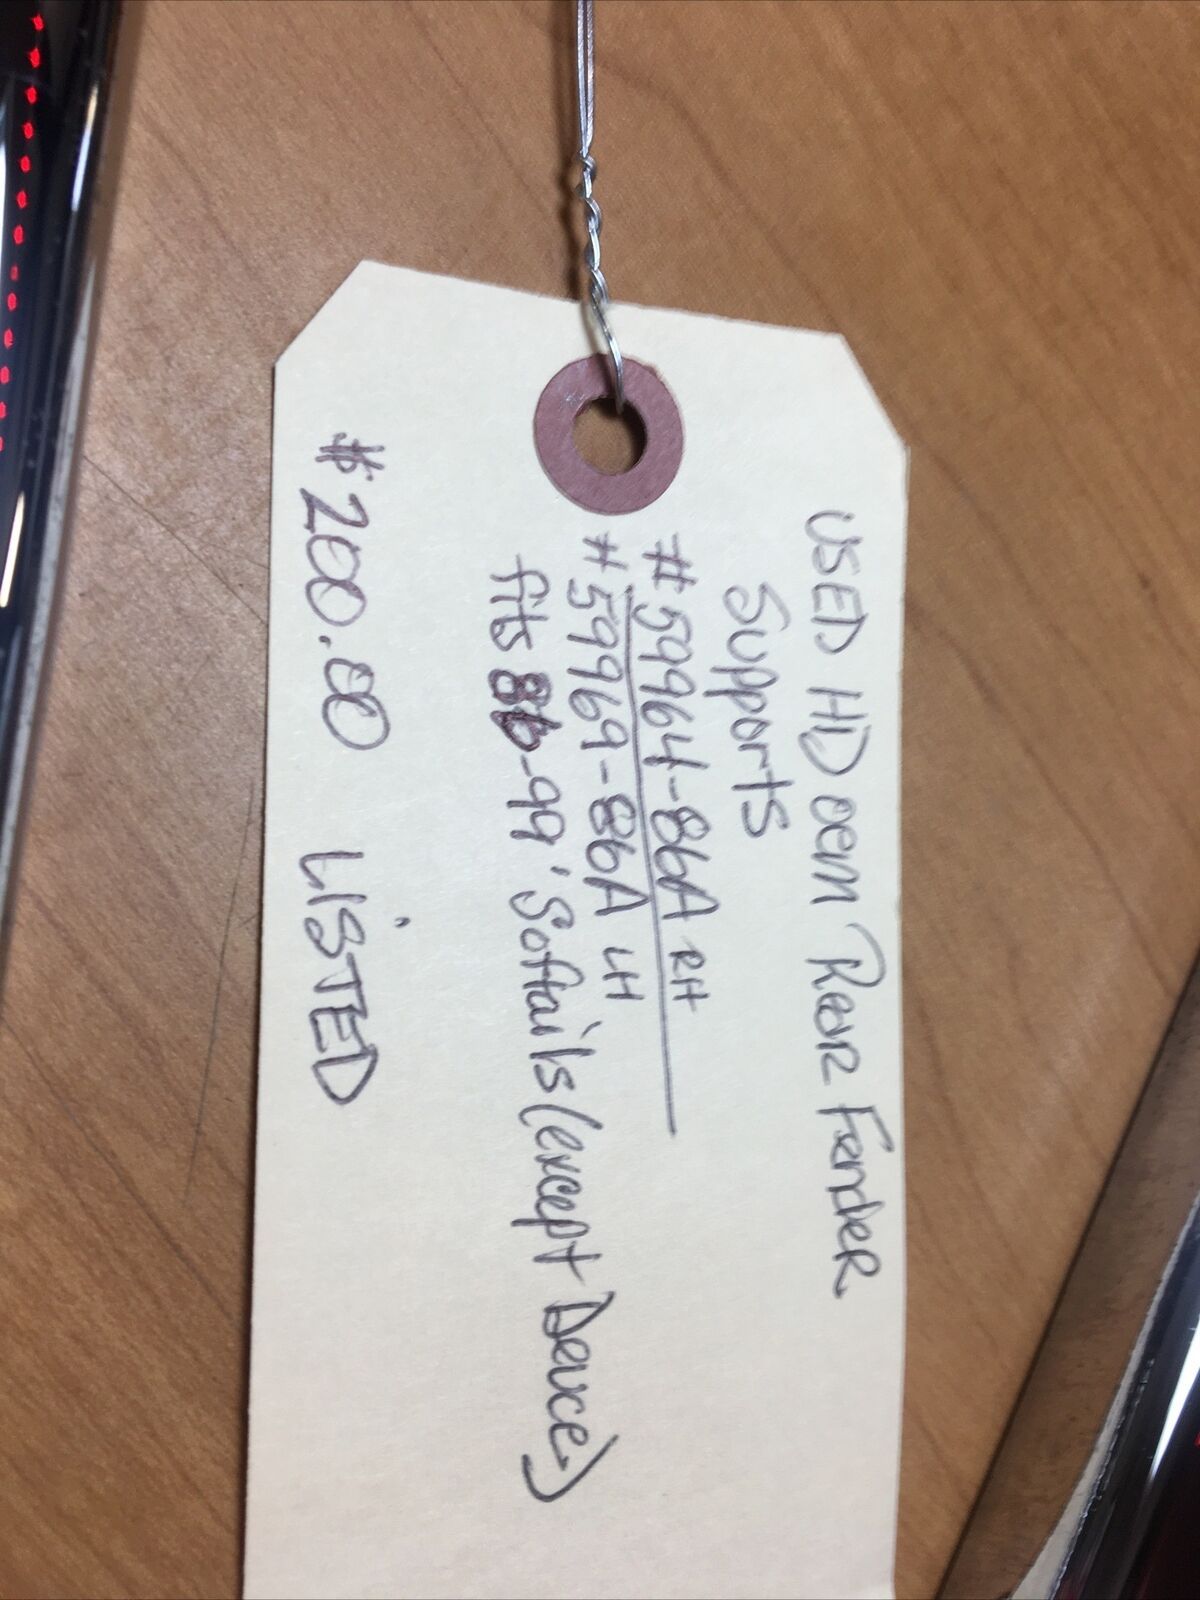 USED HD OEM Rear Fender
Supports
#59964-86A RH
#59969-86A LH
fits 86-99' Softails (except Deuce)
$200.00 LISTED